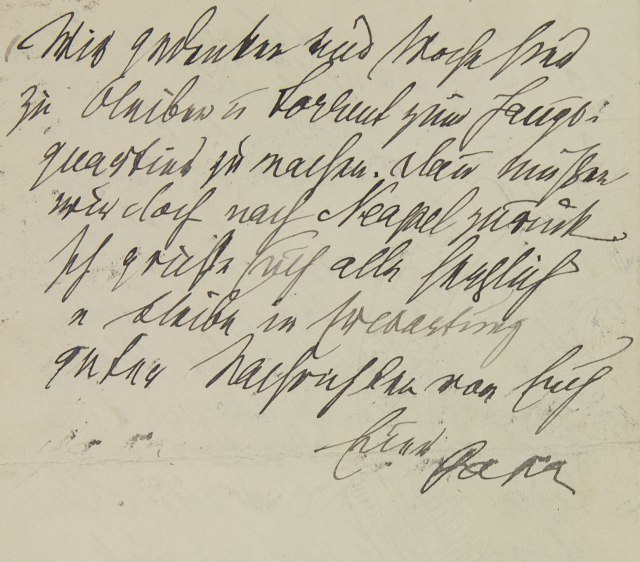 Wir gedenken eine Woche hier
zu bleiben u Sorrent zum Haupt-
quartier zu machen. Dann müßen
wir doch nach Neapel zurück.
Ich grüße Euch alle herzlich
u bleibe in Erwartung
guter Nachrichten von Euch
Euer Papa